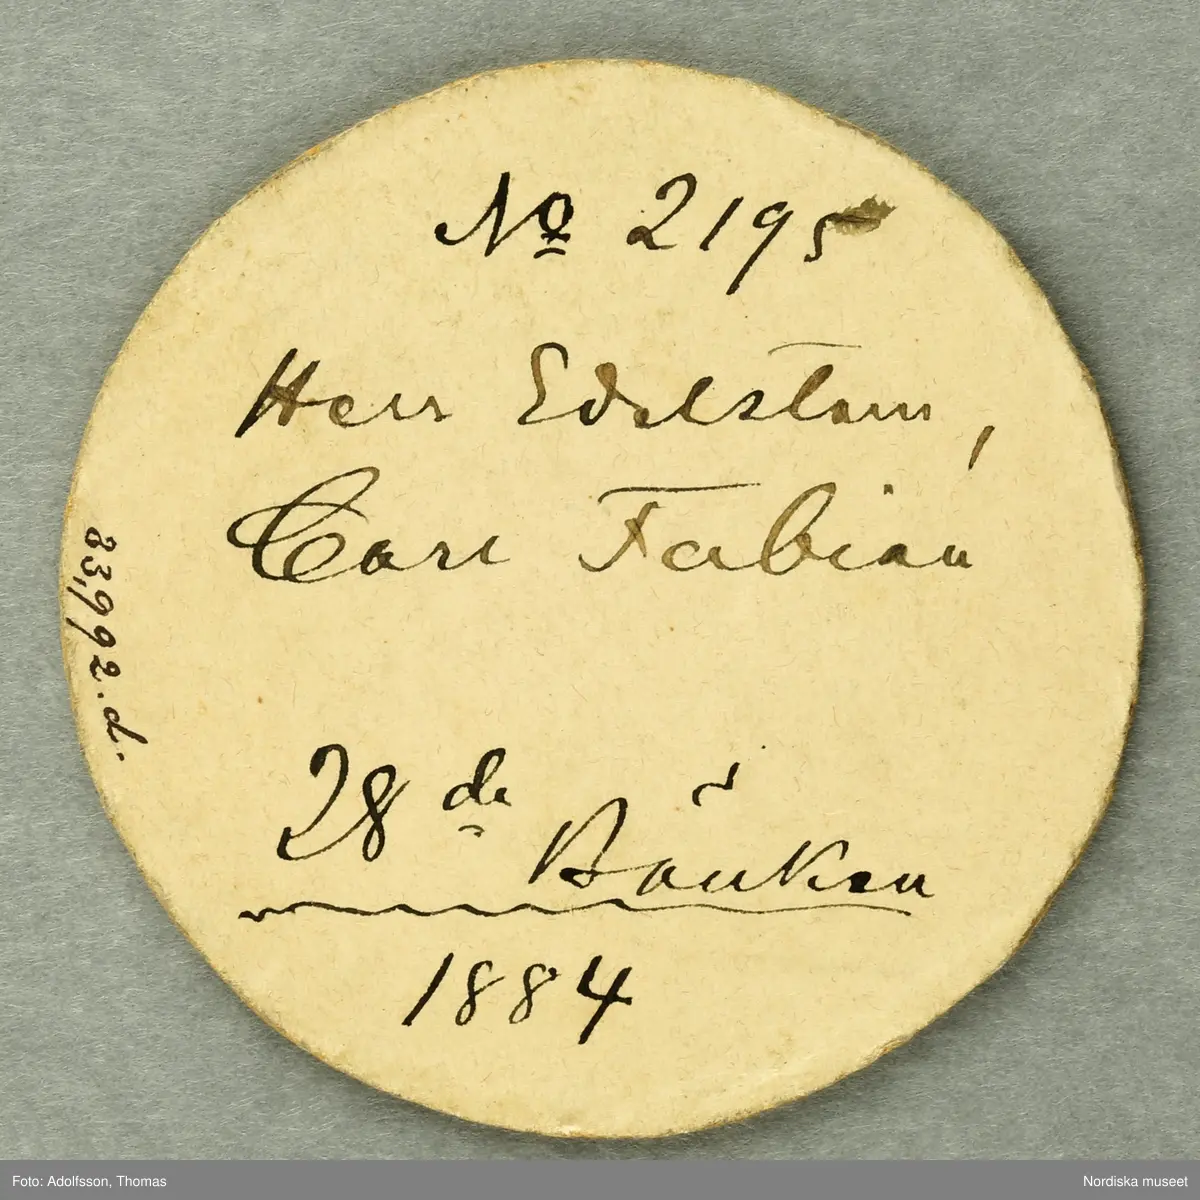 No 2195
Herr Edelstam,
Carl Fabian
28de Bänken
1884
83,992.d.
Foto: Adolfsson, Thomas
Nordiska museet